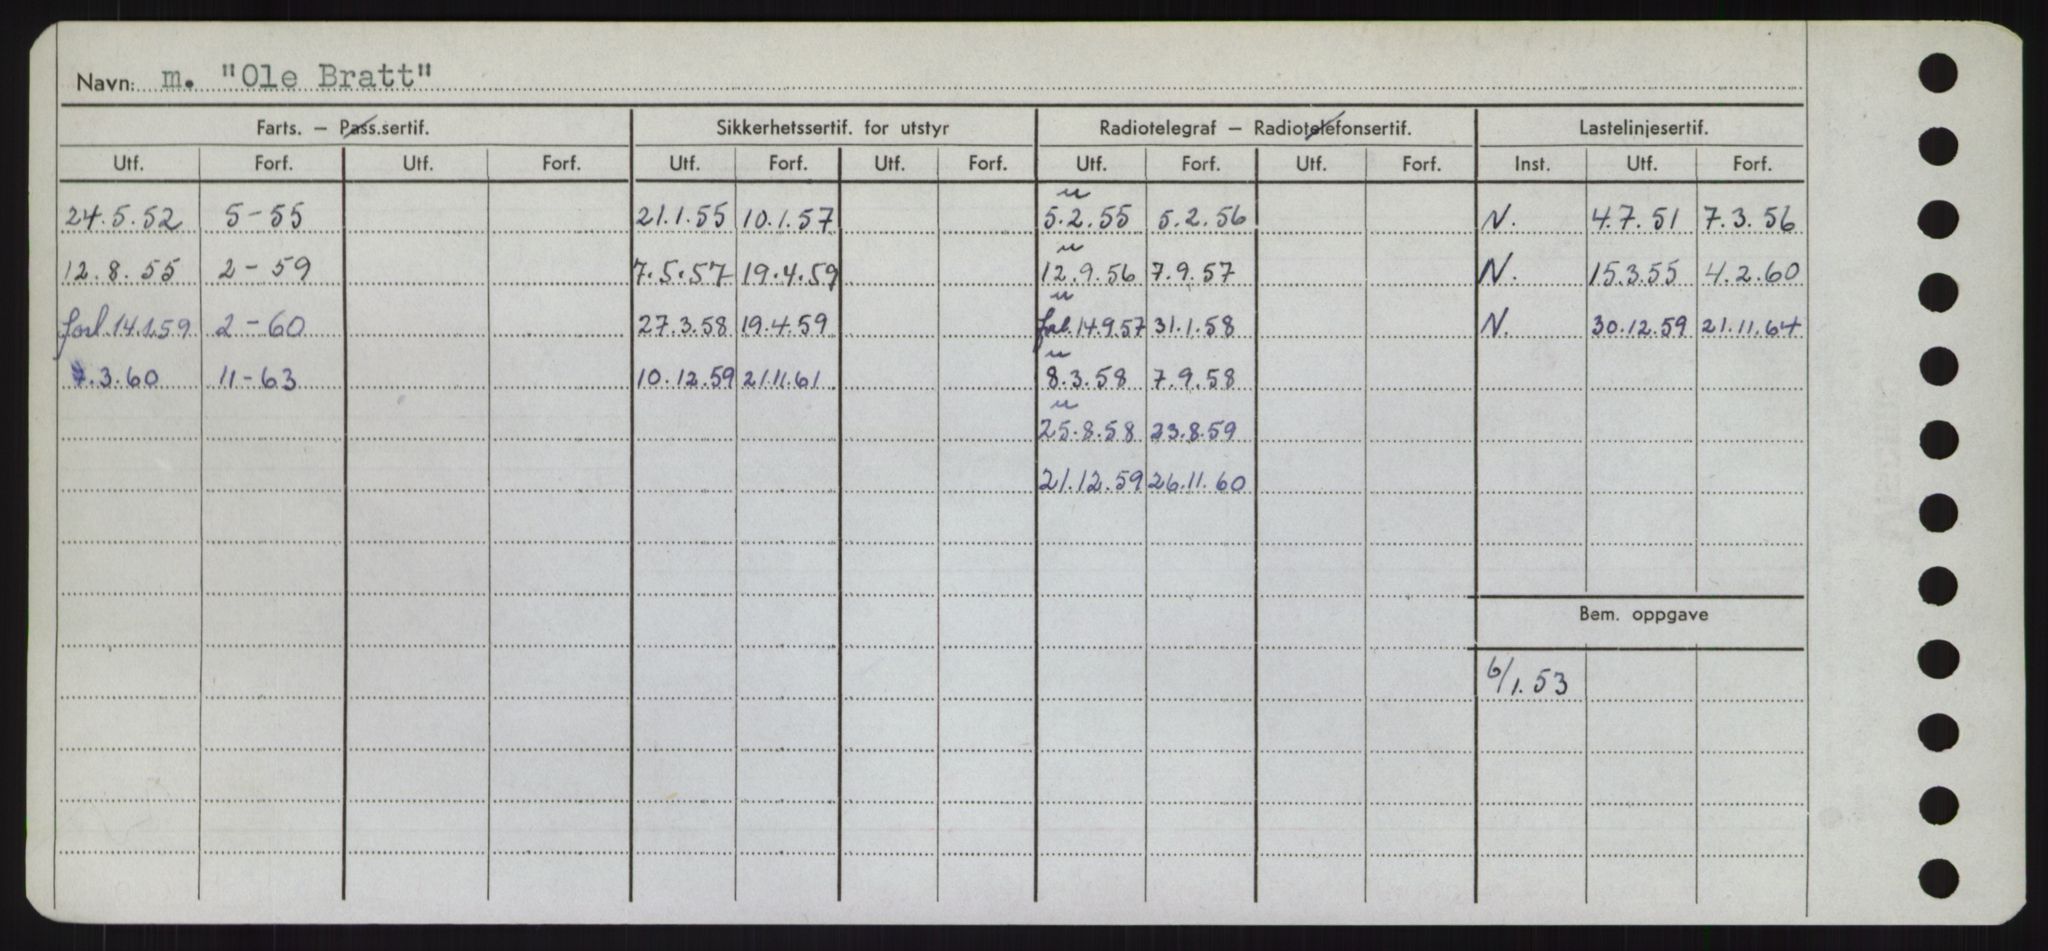 Navn: m. "Ole Bratt"
Farts. – Pass.sertif. Sikkerhetssertif. for utstyr Radiotelegraf – Radiotelefonsertif. Lastelinjesertif.
Utf. Forf. Utf. Forf. Utf. Forf. Utf. Forf. Utf. Forf. Utf. Forf. Inst. Utf. Forf.
24.5.52 5-55 21.1.55 10.1.57 5.2.55 5.2.56 N. 4.7.51 7.3.56
12.8.55 2-59 7.5.57 19.4.59 12.9.56 7.9.57 N. 15.3.55 4.2.60
forl.14.1.59 2-60 27.3.58 19.4.59 forl.14.9.57 31.1.58 N. 30.12.59 21.11.64
7.3.60 11-63 10.12.59 21.11.61 8.3.58 7.9.58
25.8.58 23.8.59
21.12.59 26.11.60
Bem. oppgave
6/1.53